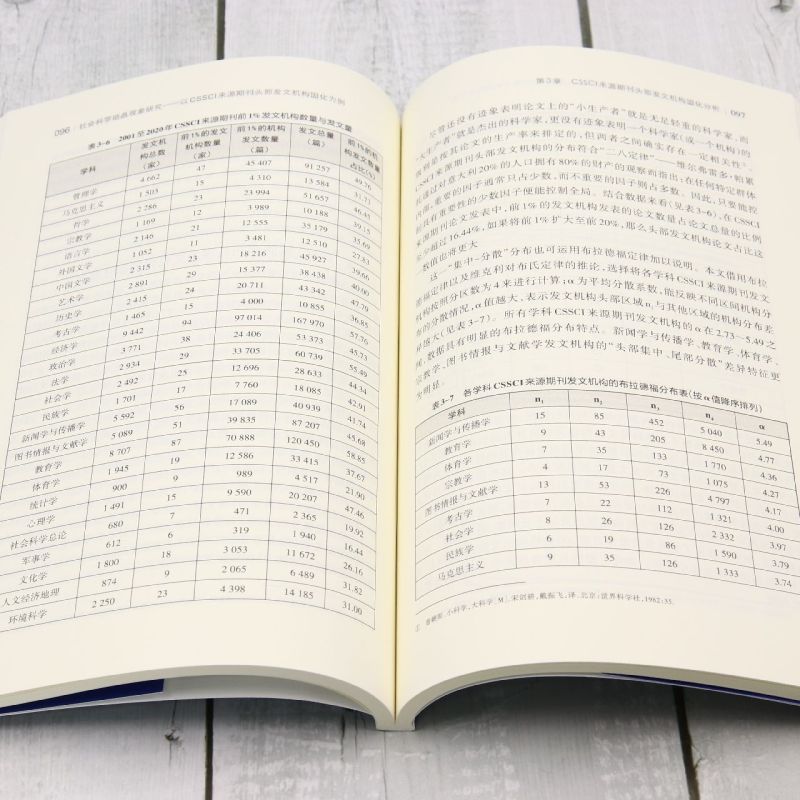 096 | 社会科学晕轮现象研究——以CSSCI来源期刊头部发文机构固化为例
表3-6 2001至2020年CSSCI来源期刊前1%发文机构数量与发文量
学科 发文机构总数(家) 前1%的发文机构数量(家) 前1%的机构发文数量(篇) 发文总量(篇) 前1%的机构发文数量占比(%)
管理学 4 662 47 45 407 91 257 49.76
马克思主义 1 503 15 4 310 13 584 31.73
哲学 2 286 23 23 994 51 657 46.45
宗教学 1 169 12 3 989 10 188 39.15
语言学 2 146 21 12 555 35 179 35.69
外国文学 1 052 11 3 481 12 510 27.83
中国文学 2 315 23 18 216 45 927 39.66
艺术学 2 891 29 15 377 38 438 40.00
历史学 2 415 24 20 711 43 342 47.79
考古学 1 465 15 4 000 10 855 36.85
经济学 9 442 94 97 014 167 970 57.76
政治学 3 771 38 24 406 53 373 45.73
法学 2 934 29 33 705 60 739 55.49
社会学 2 492 25 12 696 28 633 44.34
民族学 1 701 17 7 760 18 085 42.91
新闻学与传播学 5 592 56 17 089 40 939 41.74
图书情报与文献学 5 089 51 39 835 87 207 45.68
教育学 8 707 87 70 888 120 450 58.85
体育学 1 945 19 12 586 33 415 37.67
统计学 900 9 989 4 517 21.90
心理学 1 491 15 9 590 20 207 47.46
社会科学总论 680 7 471 2 365 19.92
军事学 612 6 319 1 940 16.44
文化学 1 800 18 3 053 11 672 26.16
人文经济地理 874 9 2 065 6 489 31.82
环境科学 2 250 23 4 398 14 185 31.00
第3章 CSSCI来源期刊头部发文机构固化分析 | 097
尽管还没有迹象表明论文上的“小生产者”就是无足轻重的科学家，而
“大生产者”就是杰出的科学家，更没有迹象表明一个科学家(或一个机构)的
质量是按其论文的生产率来排定的，但两者之间确实存在一定相关性。
CSSCI来源期刊头部发文机构的分布符合“二八定律”——维尔弗雷多·帕累
托通过对意大利20%的人口拥有80%的财产的观察而指出：在任何特定群体
内，重要的因子通常只占少数，而不重要的因子则占多数。因此，只要能控
制具有重要性的少数因子便能控制全局。结合数据来看(见表3-6)，在CSSCI
来源期刊论文发表中，前1%的发文机构发表的论文数量占论文总量的比例
至少超过16.44%，如果将前1%扩大至前20%，那么头部发文机构论文占比这
数值也将更大
这一“集中-分散”分布也可运用布拉德福定律加以说明。本文借用布拉
德福定律以及维克利对布氏定律的推论，选择将各学科CSSCI来源期刊发文
机构按照分区数为4来进行计算；α为平均分散系数，能反映不同区间机构分
布的分散情况，α值越大，表示发文机构头部区域n₁与其他区域的机构分布差
异越大(见表3-7)。所有学科CSSCI来源期刊发文机构的α在2.73~5.49之
间，数据具有明显的布拉德福分布特点。新闻学与传播学、教育学、体育学、
宗教学、图书情报与文献学发文机构的“头部集中、尾部分散”差异特征更
为明显。
表3-7 各学科CSSCI来源期刊发文机构的布拉德福分布表(按α值降序排列)
学科 n₁ n₂ n₃ n₄ α
新闻学与传播学 15 85 452 5 040 5.49
教育学 9 43 205 8 450 4.77
体育学 7 35 133 1 770 4.36
宗教学 4 17 73 1 075 4.27
图书情报与文献学 13 53 226 4 797 4.17
考古学 7 22 112 1 321 4.00
社会学 8 26 126 2 332 3.97
民族学 6 19 86 1 590 3.79
马克思主义 9 35 126 1 333 3.74
① 普赖斯. 小科学，大科学[M]. 宋剑耕，戴振飞，译. 北京：世界科学社，1982：35.